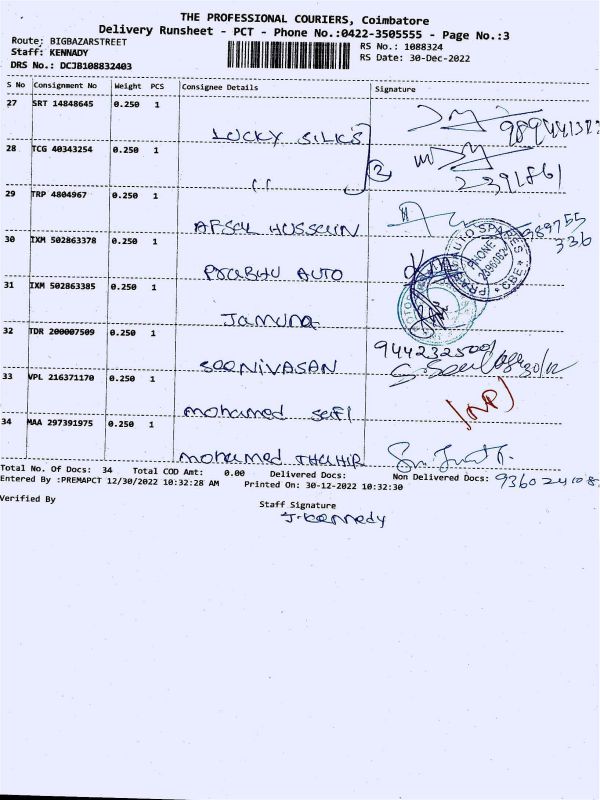 THE PROFESSIONAL COURIERS, Coimbatore
Delivery Runsheet - PCT - Phone No.:0422-3505555 - Page No.:3
Route: BIGBAZARSTREET
Staff: KENNADY
DRS No.: DCJB108832403
RS No.: 1088324
RS Date: 30-Dec-2022
S No Consignment No Weight PCS Consignee Details Signature
27 SRT 14848645 0.250 1
LUCKY SILKS
28 TCG 40343254 0.250 1
" 2
2391861
29 TRP 4804967 0.250 1
AFSAL HUSSAIN
989755
336
30 IXM 502863378 0.250 1
PRABHU AUTO
PRABHU AUTO SPARES * CBE *
PHONE
31 IXM 502863385 0.250 1
Jamuna
32 TDR 200007509 0.250 1
9442325009
SOONIVASAN
30/12
33 VPL 216371170 0.250 1
mohamed safi
34 MAA 297391975 0.250 1
mohamed THAHIR
Total No. Of Docs: 34 Total COD Amt: 0.00 Delivered Docs: Non Delivered Docs:
Entered By :PREMAPCT 12/30/2022 10:32:28 AM Printed On: 30-12-2022 10:32:30
Verified By
Staff Signature
J. Kennedy